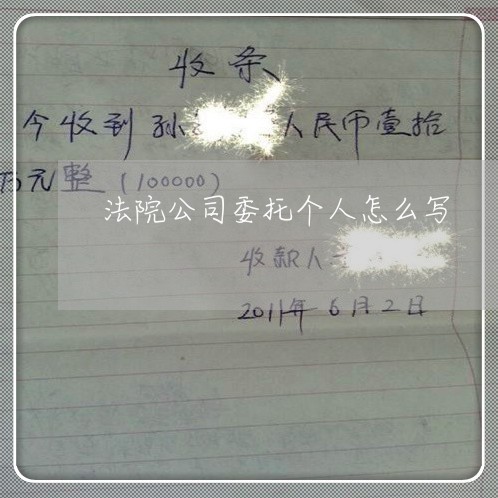 收条
今收到孙 人民币壹拾
万元整（100000）
法院公司委托个人怎么写
收款人
2011年6月2日